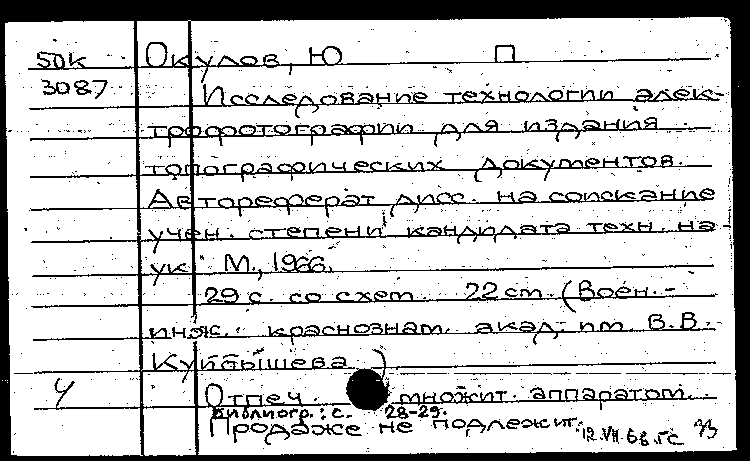 50к Окулов, Ю П
3087 Исследование технологии элек-
трофотографии для издания
топографических документов.
Автореферат дисс. на соискание
учен. степени кандидата техн. на-
ук. М., 1966.
29 с. со схем. 22 см. (Воен.-
инж. краснознам. акад. им. В.В.
Куйбышева)
Ч Отпеч. множит. аппаратом.
Библиогр.: с. 28-29.
Продаже не подлежит.
12.VII.68.ГС